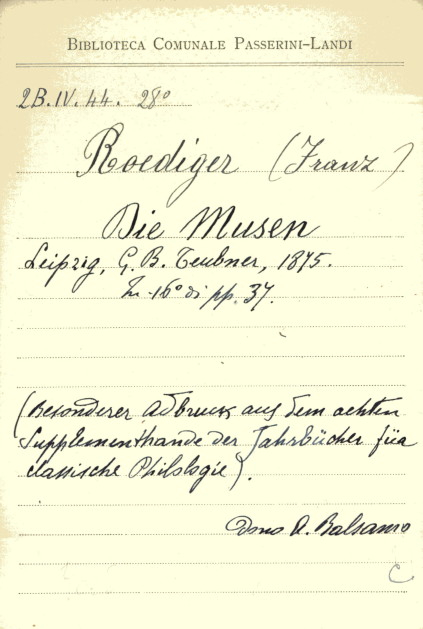 BIBLIOTECA COMUNALE PASSERINI-LANDI
2B.IV.44. 28°
Roediger (Franz)
Die Musen
Leipzig, G. B. Teubner, 1875.
In-16° di pp. 37.
(Besonderer Adbruck aus dem achten
Supplementbande der Jahrbücher für
classische Philologie).
Dono A. Balsamo
C